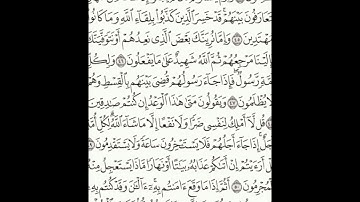 يَتَعَارَفُونَ بَيْنَهُمْ قَدْ خَسِرَ الَّذِينَ كَذَّبُوا بِلِقَاءِ اللَّهِ وَمَا كَانُوا
مُهْتَدِينَ ﴿٤٥﴾ وَإِمَّا نُرِيَنَّكَ بَعْضَ الَّذِي نَعِدُهُمْ أَوْ نَتَوَفَّيَنَّكَ
فَإِلَيْنَا مَرْجِعُهُمْ ثُمَّ اللَّهُ شَهِيدٌ عَلَىٰ مَا يَفْعَلُونَ ﴿٤٦﴾ وَلِكُلِّ
أُمَّةٍ رَسُولٌ فَإِذَا جَاءَ رَسُولُهُمْ قُضِيَ بَيْنَهُم بِالْقِسْطِ وَهُمْ
لَا يُظْلَمُونَ ﴿٤٧﴾ وَيَقُولُونَ مَتَىٰ هَٰذَا الْوَعْدُ إِن كُنتُمْ صَادِقِينَ
قُل لَّا أَمْلِكُ لِنَفْسِي ضَرًّا وَلَا نَفْعًا إِلَّا مَا شَاءَ اللَّهُ لِكُلِّ
أَجَلٌ إِذَا جَاءَ أَجَلُهُمْ فَلَا يَسْتَأْخِرُونَ سَاعَةً وَلَا يَسْتَقْدِمُونَ
قُلْ أَرَأَيْتُمْ إِنْ أَتَاكُمْ عَذَابُهُ بَيَاتًا أَوْ نَهَارًا مَّاذَا يَسْتَعْجِلُ مِنْهُ
الْمُجْرِمُونَ ﴿٥٠﴾ أَثُمَّ إِذَا مَا وَقَعَ آمَنتُم بِهِ آلْآنَ وَقَدْ كُنتُم بِهِ